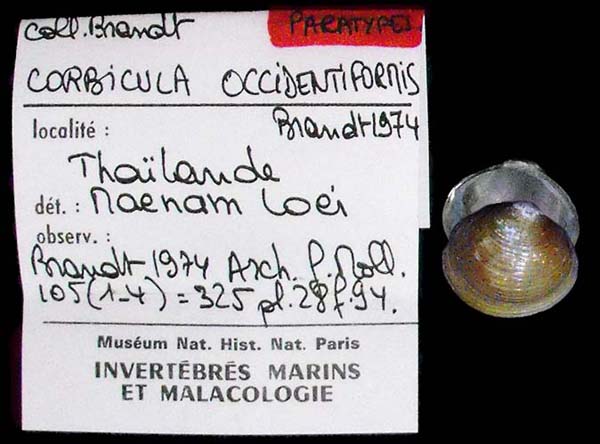 coll. Brandt PARATYPES
CORBICULA OCCIDENTIFORMIS
localité : Brandt 1974
Thaïlande
dét. : Maenam Loei
observ. :
Brandt 1974 Arch. f. Moll.
105(1-4) = 325 pl. 28 f. 94.
Muséum Nat. Hist. Nat. Paris
INVERTÉBRÉS MARINS
ET MALACOLOGIE